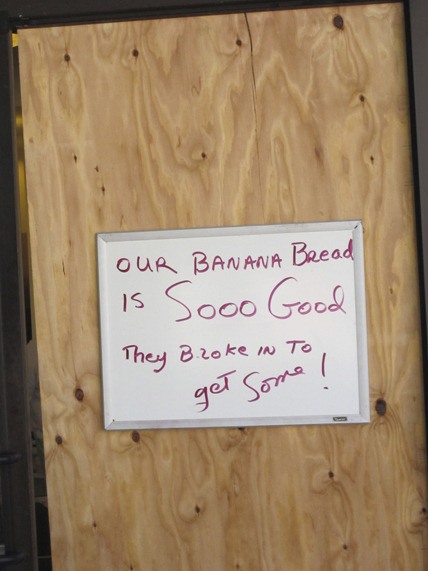 OUR BANANA Bread
IS Sooo Good
They Broke IN To
get Some!